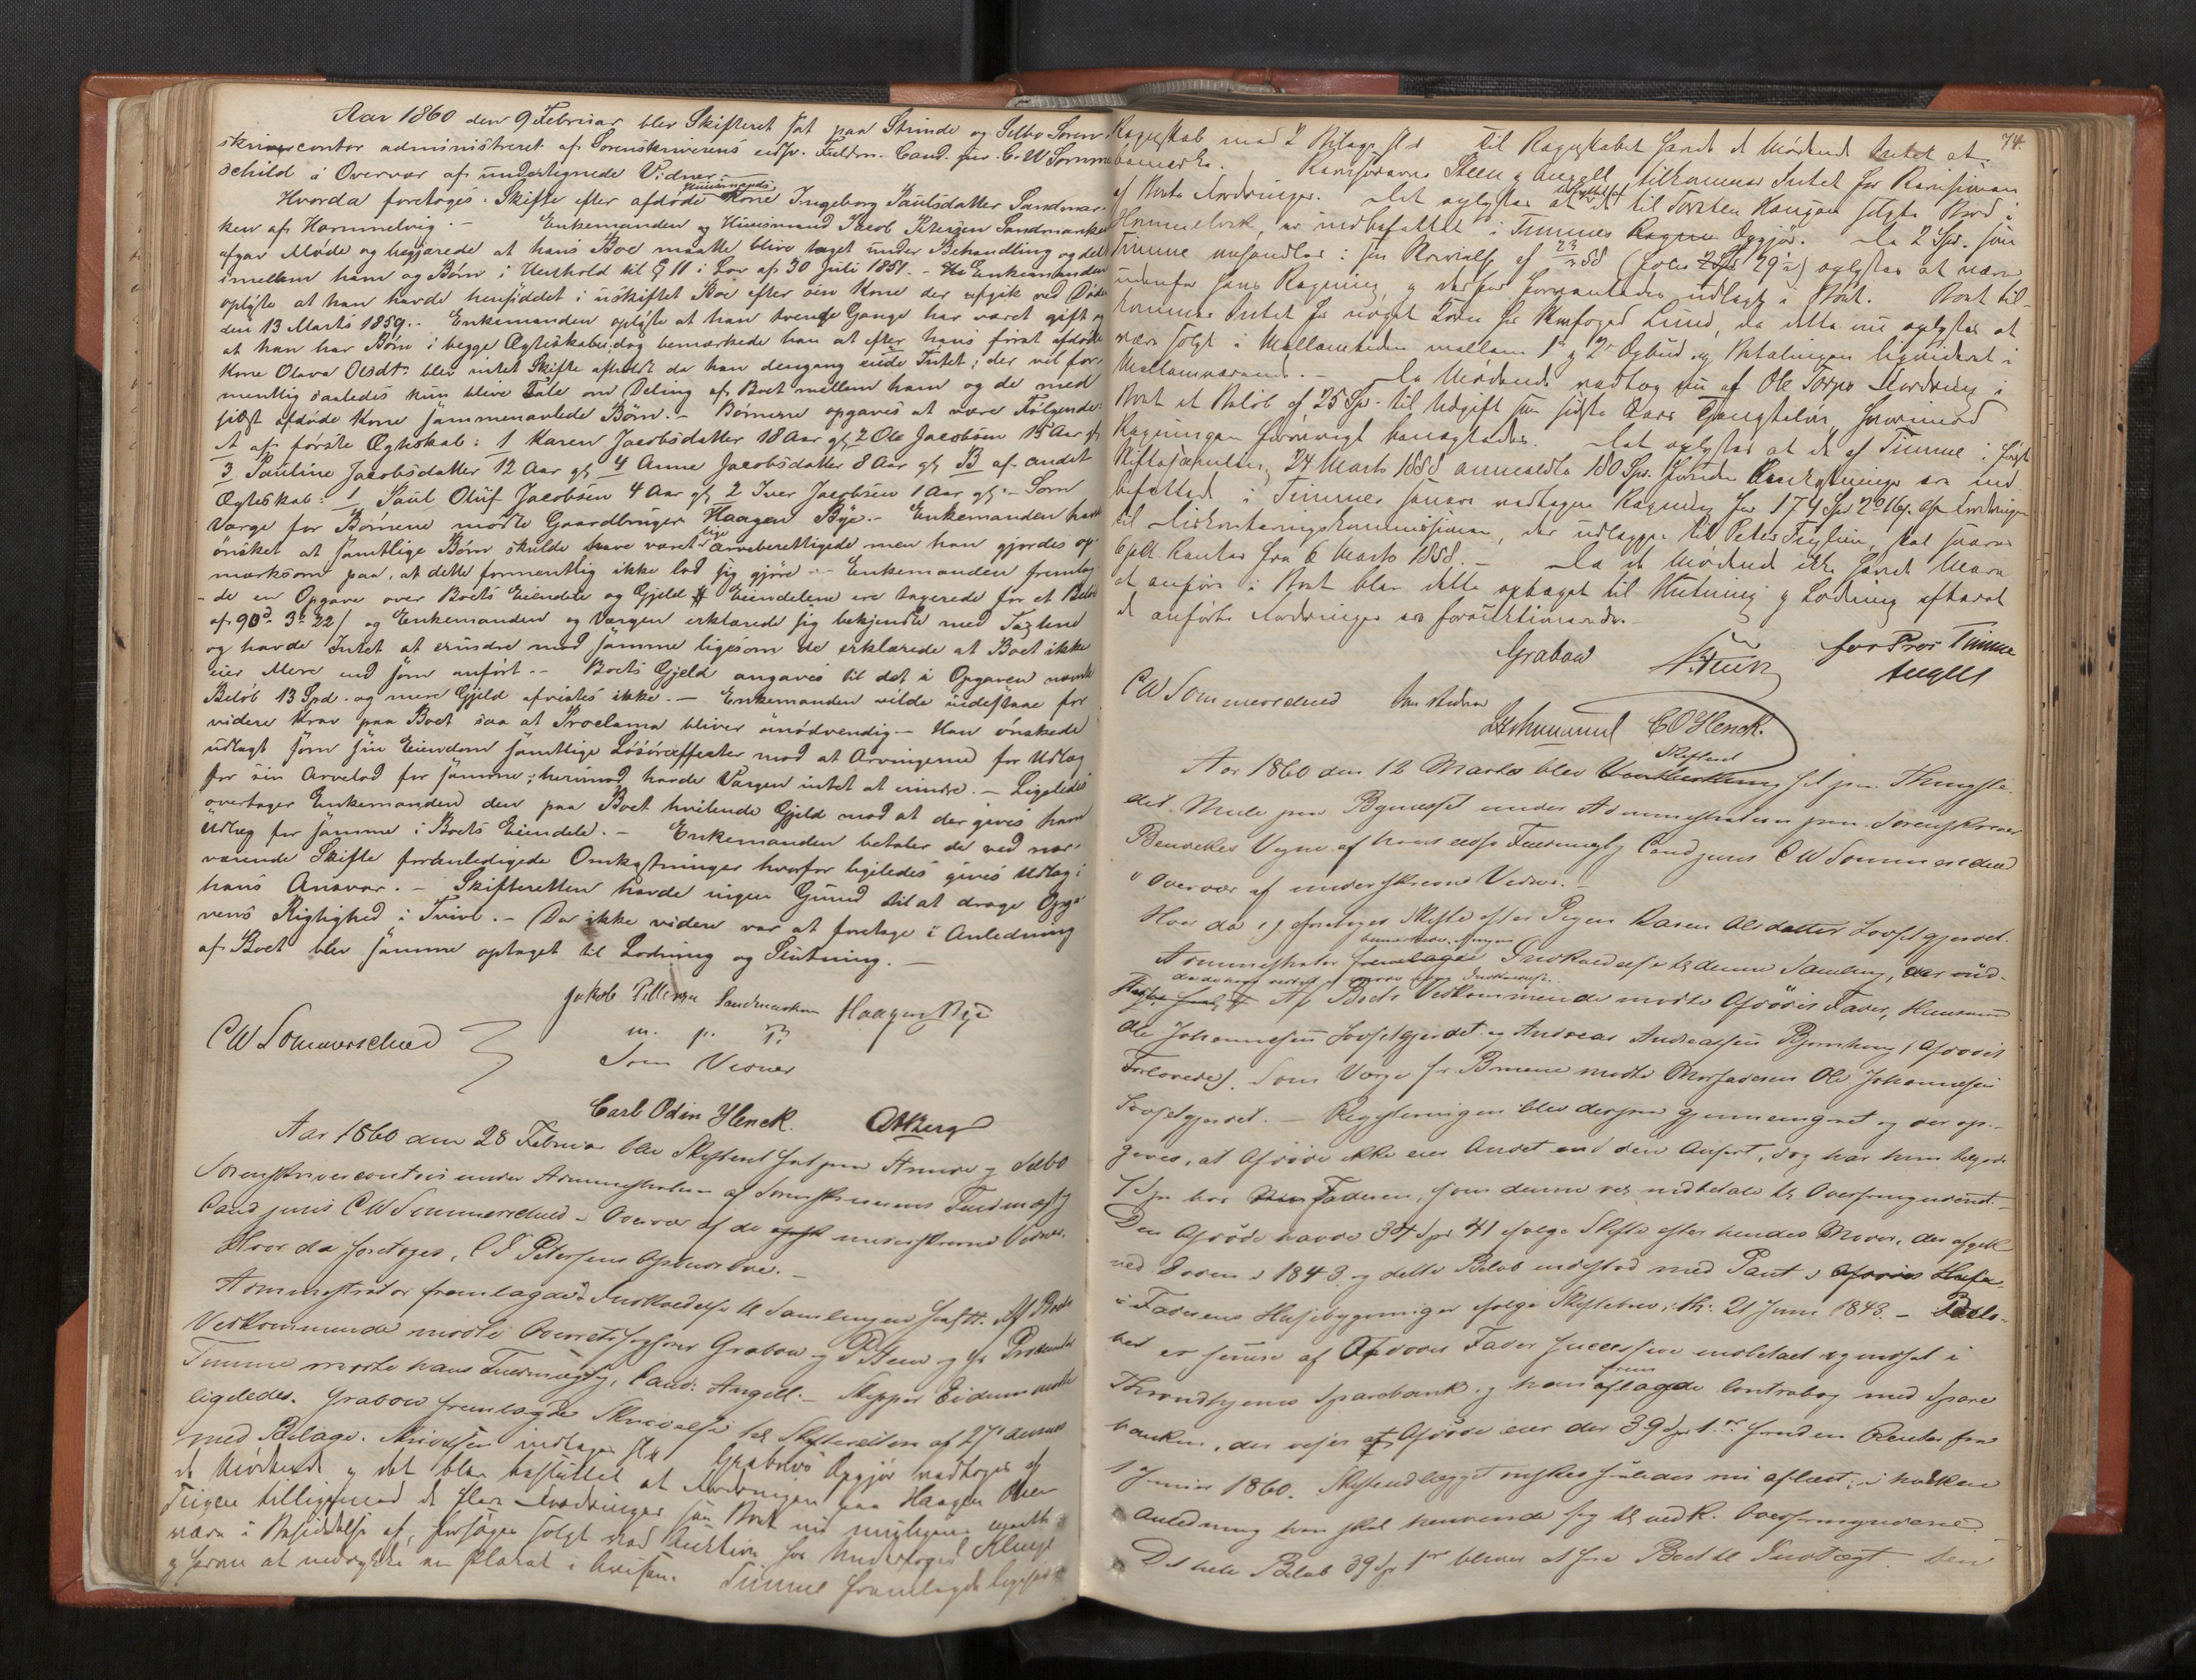 Aar 1860 den 9 Februar blev Skifteret sat paa Strinde og Selbo Soren-
skrivercontor administreret af Sorenskriverens edsv. Fuldm. Cand. jur. C. W Sommer
schild i Overvær af undertegnede Vidner
Hvorda foretoges Skifte efter afdøde Huusmands Kone Ingeborg Paulsdatter Sandmar-
ken af Hommelvig. - Enkemanden og Huusmand Jacob Petersen Sandmarken
afgav Møde og begjærede at hans Boe maatte blive taget under Behandling og delt
imellem ham og Børn i Henhold til § 11 i Lov af 30 Juli 1851. - Enkemanden
oplyste at han havde hensiddet i uskiftet Boe efter sin Kone der afgik ved Døden
den 13 Marts 1859. - Enkemanden oplyste at han tvende Gange har været gift og
at han har Børn i begge Ægteskaber, dog bemærkede han at efter hans først afdøde
Kone Olava Olsdtr blev intet Skifte afholdt da han dengang eiede Intet; der vil for-
mentlig saaledes kun blive Tale om Deling af Boet mellem ham og de med
sidst afdøde Kone sammenavlede Børn. - Børnene opgaves at være Følgende:
A af første Ægteskab: 1 Karen Jacobsdatter 18 Aar gl, 2 Ole Jacobsen 15 Aar gl
3 Pauline Jacobsdatter 12 Aar gl, 4 Anne Jacobsdatter 8 Aar gl, B af andet
Ægteskab: 1 Paul Oluf Jacobsen 4 Aar gl, 2 Iver Jacobsen 1 Aar gl. - Som
Værge for Børnene mødte Gaardbruger Haagen Bye. - Enkemanden havde
ønsket at samtlige Børn skulde have været lige arveberettigede men han gjordes op-
mærksom paa, at dette formentlig ikke lod sig gjøre. - Enkemanden fremlag-
de en Opgave over Boets Eiendele og Gjeld Eiendelene ere taxerede for et Beløb
af 90 3 22 / og Enkemanden og Værgen erklærede sig bekjendte med Taxterne
og havde Intet at erindre mod samme ligesom de erklærede at Boet ikke
eier Mere end som anført. - Boets Gjeld angaves til det i Opgaven nævnte
Beløb 13 Spd. og mere Gjeld afvistes ikke. - Enkemanden vilde indestaae for
videre Krav paa Boet saa at Proclama bliver unødvendig. - Han ønskede
udlagt som sin Eiendom samtlige Løsøreeffecter mod at Arvingerne for Udlæg
for sin Arvelod for samme; herimod havde Værgen intet at erindre. - Ligeledes
overtager Enkemanden den paa Boet hvilende Gjeld mod at der gives ham
Udlæg for samme i Boets Eiendele. - Enkemanden betaler de ved nær-
værende Skifte foranledigede Omkostninger hvorfor ligeledes gives Udlæg i
hans Ansvar. - Skifteretten havde ingen Grund til at drage Opga-
vens Rigtighed i Tvivl. - Da ikke videre var at foretage i Anledning
af Boet blev samme optaget til Lodning og Slutning. -
Jakob Pettersen Sandmarken Haagen Bye
m. p. P.
CW Sommerschield
Som Vidner
Carl Odin Ylenck.
Aar 1860 den 28 Februar blev Skifteret sat paa Strinde og Selbo
Sorenskrivercontoir under Administration af Sorenskriverens Fuldmægtig
Cand juris C W Sommerschield i Overvær af de underskrevne Vidner.
Hvor da foretoges, C F Petersens Opbudsboe. -
Administrator fremlagde Indkaldelse til Samlingen. Af Boets
Vedkommende mødte Overretssagfører Grabow og P Steen og for Procurator
Timme mødte hans Fuldmægtig, Cand: Angell. - Skipper Eidum mødte
ligeledes. Grabow fremlagde Skrivelse til Skifteretten af 27 dennes
med Bilage. Skrivelsen indtages Grabows Opgjør vedtoges af
de Mødende og det blev besluttet at Fordringen paa Haagen
tilligemed de flere Fordringer som Boet
være i Besiddelse af, søges solgt ved Auktion for Underfoged Klingenberg
og foran at indrykke en Plakat i Avisen. Timme fremlagde ligeledes
74.
Regnskab med 2 Bilage Til Regnskabet havde de Mødende Intet at
bemærke. Ramsøerne Steen og Angell tilkommer Intet for
af Boets Fordringer. Det oplystes at det til Torsten Haugan solgte Brød i
Hommelvik, er indbefattet i Timmes Opgjør. De 2 Spd. som
Timme omhandler i sin Skrivelse af 23/2 58 (folio 29) oplystes at være
udenfor hans Regning, og derfor udlagt i Boet. Boet til-
kommer Intet for noget for Skarfoged Lund, da dette nu oplystes at
være solgt i Mellemtiden mellem 1ste og 2det Opbud og Betalingen likvideret i
Mellemværende. - De Mødende vedtog nu af Ole Torps Fordring i
Boet et Beløb af 25 Spd. til Udgift som sidste Aars Tjenesteløn, hvorimod
Regningen forøvrigt benegtedes. Det oplystes at de af Timme i
Skiftesamling 24 Marts 1858 anmeldte 180 Spd. foruden Omkostninger er ind-
befattede i Timmes senere vedtagne Regning for 174 Spd 2 16. Fordringen
til Diskonteringskommissionen, der udlægges til Peter Fuglem, skal svare
6 pCt. Renter fra 6 Marts 1858. - Da de Mødende ikke havde Mere
at anføre i Boet blev dette optaget til Slutning og Lodning efterat
de anførte Fordringer er bortauktionerede. -
Grabow P. Steen for Pror Timme
Angell
CW Sommerschield Som Vidner
C O Ylenck.
Aar 1860 den 12 Marts blev Skifteret sat paa Thingste-
det Mule paa Bynesset under Administration paa Sorenskriver
Vegne af hans edsv Fuldmægtig Cand juris C W Sommerschield
i Overvær af underskrevne Vidner. -
Hvor da 1) foretoges Skifte efter Pigen Karen Olsdatter Lovsetgjerdet.
Administrator fremlagde Indkaldelse til denne Samling,
Af Boets Vedkommende mødte Afdødes Fader, Huusmand
Ole Johannesen Lovsetgjerdet og Andreas Andreassen Bjørnhaug (Afdødes
Forlovede). Som Værge for Børnene mødte Morfaderen Ole Johannesen
Lovsetgjerdet. - Registreringen blev derpaa gjennemgaaet og der op-
gaves, at Afdøde ikke eier Andet end den Anført, dog har hun
7 Spd hos Faderen, som denne vil indbetale til Overformynderiet. -
Den Afdøde havde 34 Spd 41 ifølge Skifte efter hendes Moder, der afgik
ved Døden i 1843, og dette Beløb indestod med Pant i
i Faderens Huusebygninger ifølge Skiftebrev, th: 21 Juni 1843. - Beløbet
er senere af Afdødes Fader successive indbetalt og indsat i
Throndhjems Sparebank, og han fremlagde Contrabog med Spare
banken, der viser at Afdøde eier der 39 Spd 1 foruden Renter fra
1 Januar 1860. Skifteudlægget ønskes saaledes nu aflæst; i hvilken
Anledning han skal henvende sig til vedk. Overformynderie.
Det hele Beløb 39 Spd 1 bliver at føre Boet til Indtægt. Den